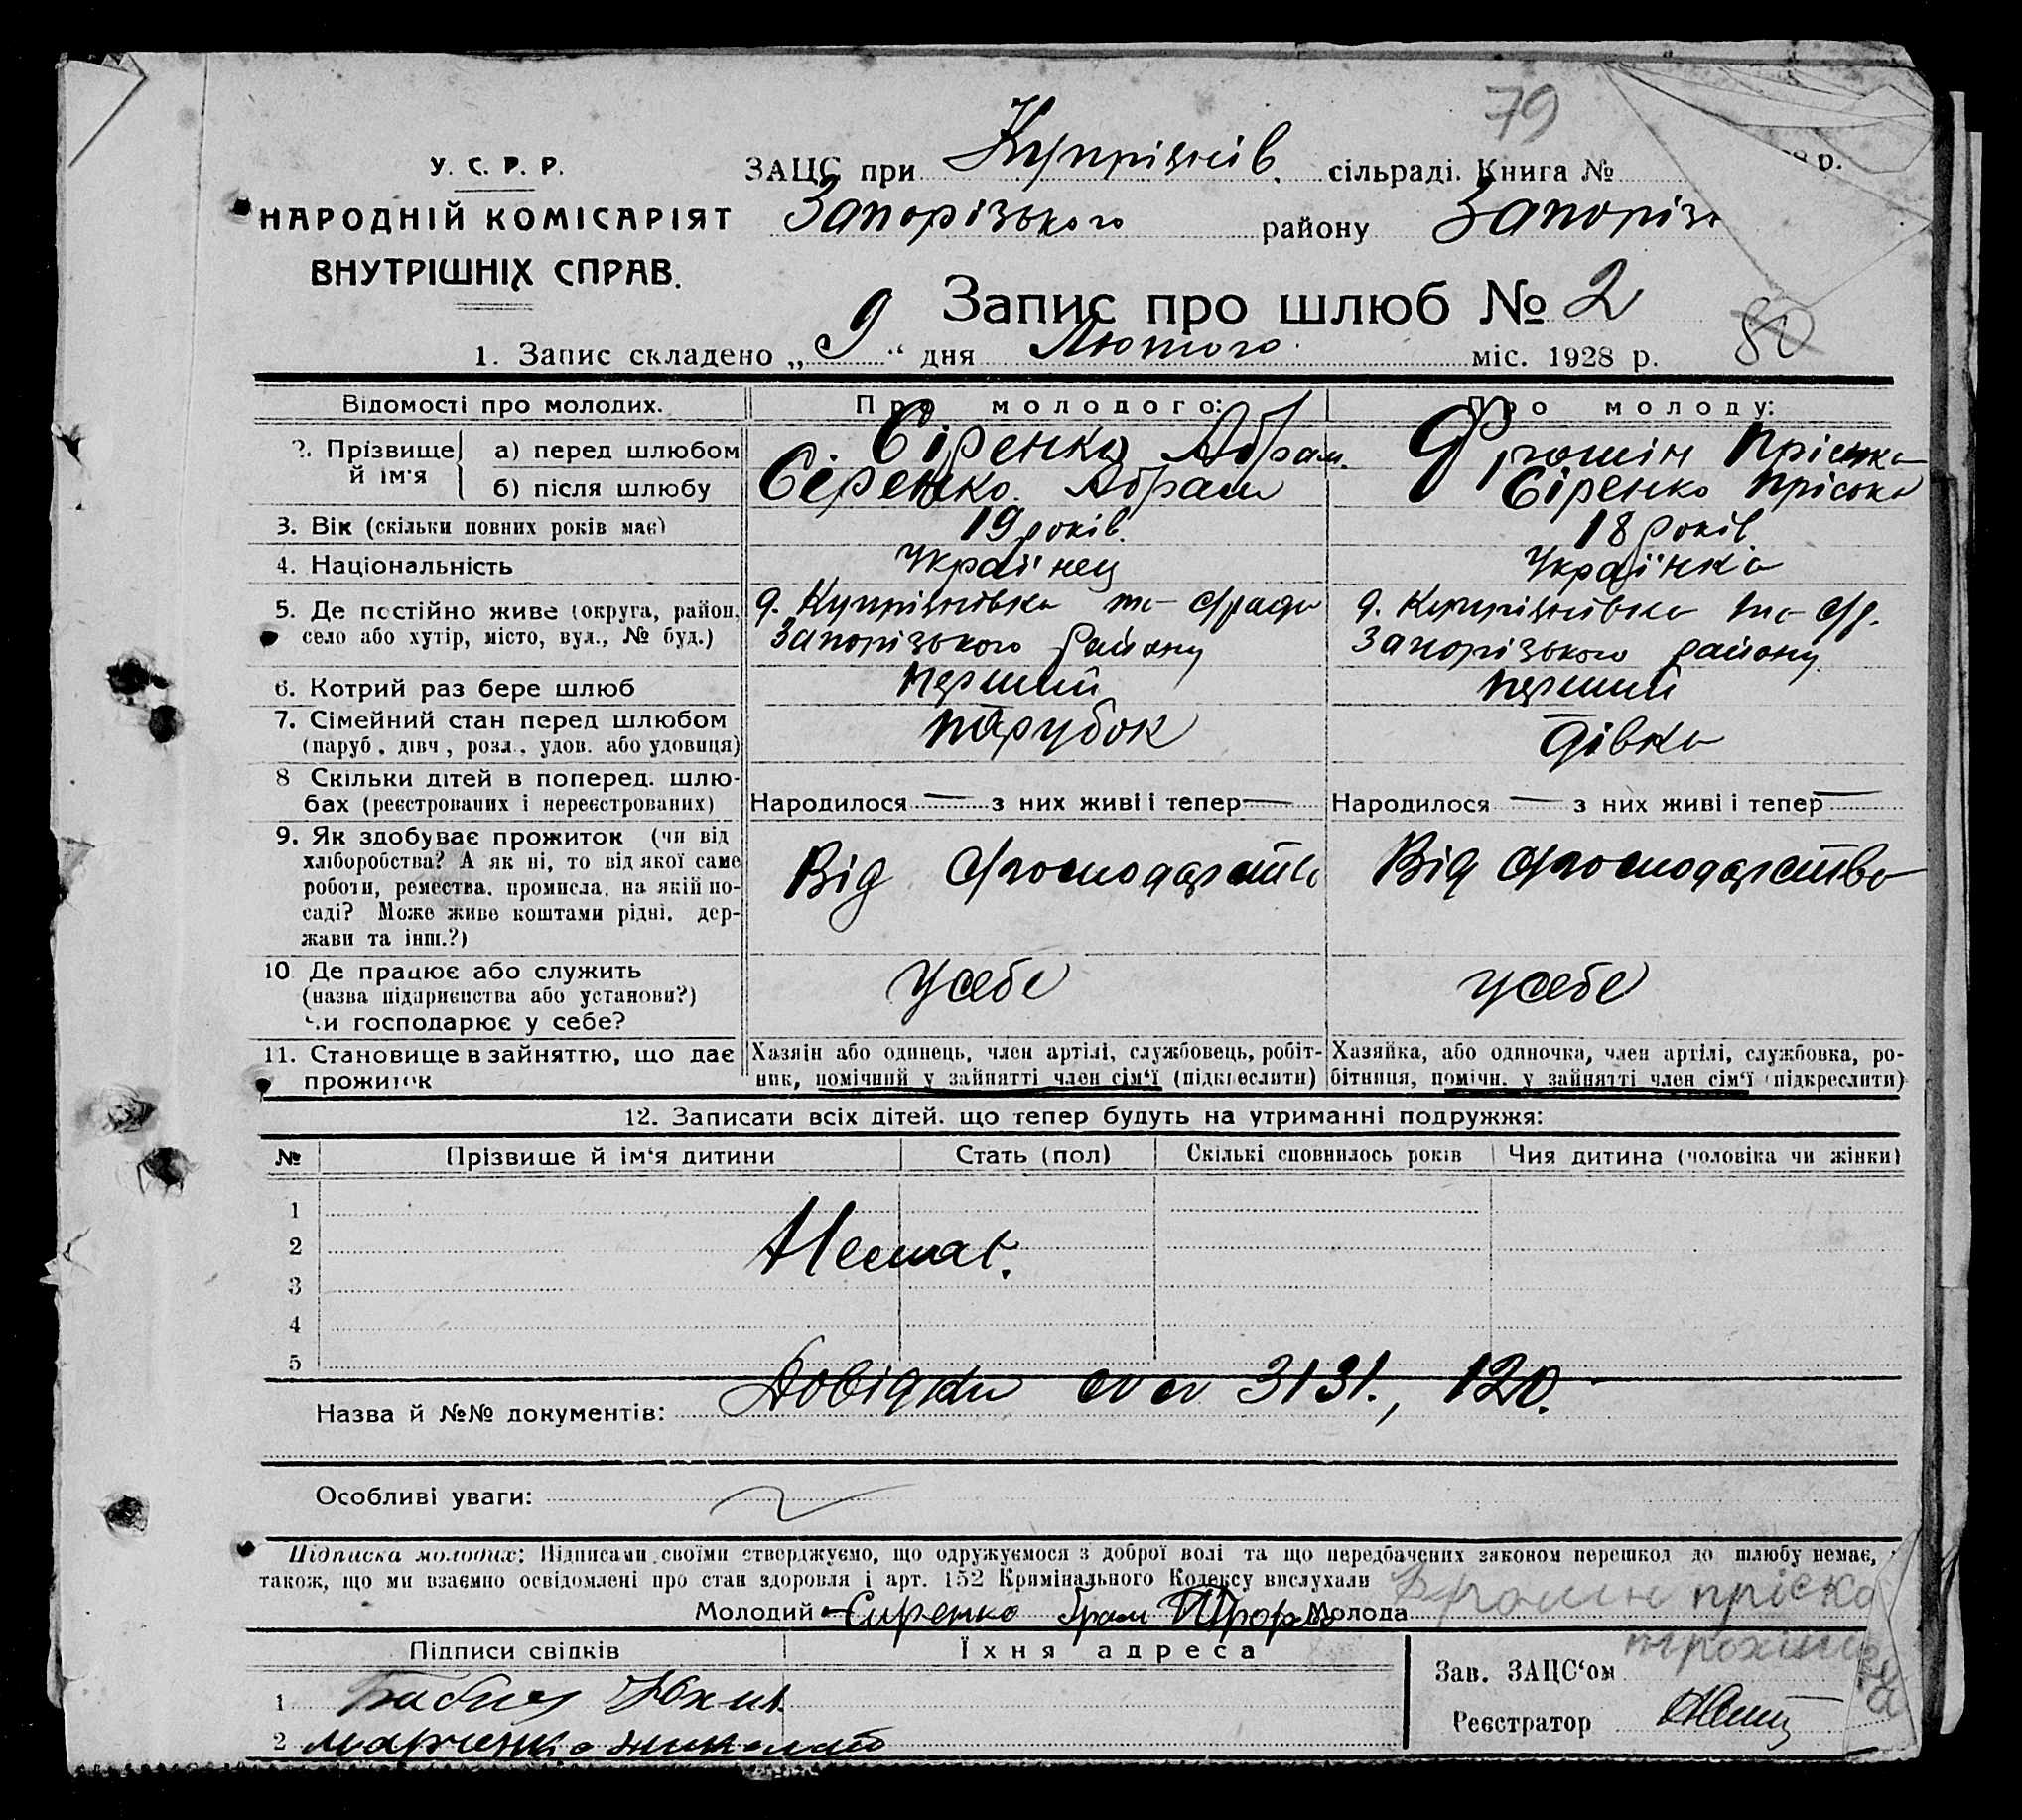 79
У. С. Р. Р.
НАРОДНІЙ КОМІСАРІЯТ
ВНУТРІШНІХ СПРАВ.
ЗАЦС при Купріянів. сільраді. Книга №
р.
Запорізького району Запоріз
Запис про шлюб № 2
80
1. Запис складено „ 9 “ дня Лютого міс. 1928 р.
Відомості про молодих. Про молодого: Про молоду:
2. Прізвище й ім'я а) перед шлюбом Сіренко Абрам. Пріська
б) після шлюбу Сіренко Абрам Сіренко Пріська
3. Вік (скільки повних років має) 19 років. 18 років
4. Національність Украінец Украінка
5. Де постійно живе (округа, район, село або хутір, місто, вул., № буд.)
с. Купріянівка Запорізького району
с. Купріянівка Запорізького району
6. Котрий раз бере шлюб перший перший
7. Сімейний стан перед шлюбом (паруб., дівч., розл., удов. або удовиця) парубок дівка
8 Скільки дітей в поперед. шлюбах (реєстрованих і нереєстрованих)
Народилося — з них живі і тепер —
Народилося — з них живі і тепер —
9. Як здобуває прожиток (чи від
хліборобства? А як ні, то від якої саме
роботи, ремества, промисла, на якій по-
саді? Може живе коштами рідні, дер-
жави та інш.?)
Від Від
10 Де працює або служить
(назва підприємства або установи?)
чи господарює у себе?
у себе у себе
11. Становище в зайняттю, що дає
прожиток
Хазяїн або одинець, член артілі, службовець, робіт-
ник, помічний у зайнятті член сім‘ї (підкреслити)
Хазяйка, або одиночка, член артілі, службовка, ро-
бітниця, помічн. у зайнятті член сім‘ї (підкреслити)
12. Записати всіх дітей. що тепер будуть на утриманні подружжя:
№ Прізвише й ім‘я дитини Стать (пол) Скількі сповнилось років Чия дитина (чоловіка чи жінки)
1
2 Немає.
3
4
5
Назва й №№ документів: Довідки 3131., 120.
Особливі уваги:
Підписка молодих: Підписами своїми стверджуємо, що одружуємося з доброї волі та що передбачених законом перешкод до шлюбу немає,
також, що ми взаємно освідомлені про стан здоровля і арт. 152 Кримінального Кодексу вислухали
Молодий Сиренко Молода пріска
Підписи свідків Їхня адреса
Зав. ЗАЦС‘ом
1
Реєстратор
2 марченко